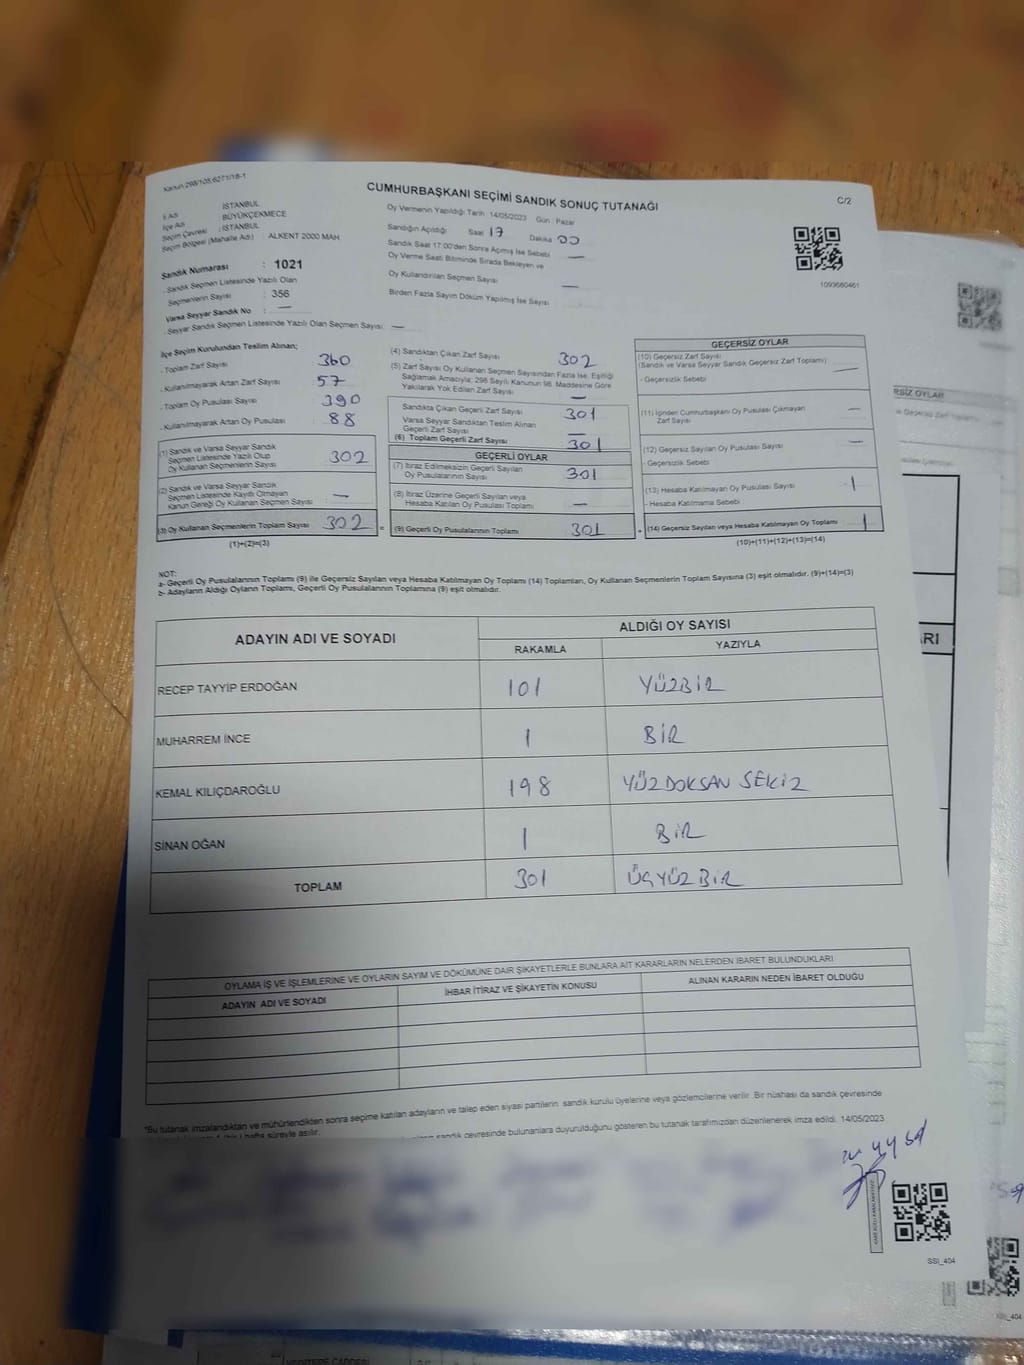 Kanun:298/105,6271/18-1
CUMHURBAŞKANI SEÇİMİ SANDIK SONUÇ TUTANAĞI
C/2
İl Adı : İSTANBUL
İlçe Adı : BÜYÜKÇEKMECE
Seçim Çevresi : İSTANBUL
Seçim Bölgesi (Mahalle Adı) : ALKENT 2000 MAH
Sandık Numarası : 1021
- Sandık Seçmen Listesinde Yazılı Olan
Seçmenlerin Sayısı : 356
Varsa Seyyar Sandık No : —
- Seyyar Sandık Seçmen Listesinde Yazılı Olan Seçmen Sayısı: —
Oy Vermenin Yapıldığı Tarih : 14/05/2023 Gün : Pazar
Sandığın Açıldığı Saat 17 Dakika 00
Sandık Saat 17:00'den Sonra Açılmış İse Sebebi —
Oy Verme Saati Bitiminde Sırada Bekleyen ve
Oy Kullandırılan Seçmen Sayısı —
Birden Fazla Sayım Döküm Yapılmış İse Sayısı
1093680461
İlçe Seçim Kurulundan Teslim Alınan;
- Toplam Zarf Sayısı 360
- Kullanılmayarak Artan Zarf Sayısı 57
- Toplam Oy Pusulası Sayısı 390
- Kullanılmayarak Artan Oy Pusulası 88
(1) Sandık ve Varsa Seyyar Sandık
Seçmen Listesinde Yazılı Olup
Oy Kullanan Seçmenlerin Sayısı 302
(2) Sandık ve Varsa Seyyar Sandık
Seçmen Listesinde Kayıtlı Olmayan
Kanun Gereği Oy Kullanan Seçmen Sayısı —
(3) Oy Kullanan Seçmenlerin Toplam Sayısı 302
(1)+(2)=(3)
(4) Sandıktan Çıkan Zarf Sayısı 302
(5) Zarf Sayısı Oy Kullanan Seçmen Sayısından Fazla İse, Eşitliği
Sağlamak Amacıyla; 298 Sayılı Kanunun 98. Maddesine Göre
Yakılarak Yok Edilen Zarf Sayısı —
Sandıkta Çıkan Geçerli Zarf Sayısı 301
Varsa Seyyar Sandıktan Teslim Alınan
Geçerli Zarf Sayısı —
(6) Toplam Geçerli Zarf Sayısı 301
GEÇERLİ OYLAR
(7) İtiraz Edilmeksizin Geçerli Sayılan
Oy Pusulalarının Sayısı 301
(8) İtiraz Üzerine Geçerli Sayılan veya
Hesaba Katılan Oy Pusulası Toplamı —
= (9) Geçerli Oy Pusulalarının Toplamı 301
GEÇERSİZ OYLAR
(10) Geçersiz Zarf Sayısı
(Sandık ve Varsa Seyyar Sandık Geçersiz Zarf Toplamı) —
- Geçersizlik Sebebi
(11) İçinden Cumhurbaşkanı Oy Pusulası Çıkmayan —
Zarf Sayısı
(12) Geçersiz Sayılan Oy Pusulası Sayısı —
- Geçersizlik Sebebi
(13) Hesaba Katılmayan Oy Pusulası Sayısı 1
- Hesaba Katılmama Sebebi
+ (14) Geçersiz Sayılan veya Hesaba Katılmayan Oy Toplamı 1
(10)+(11)+(12)+(13)=(14)
NOT:
a- Geçerli Oy Pusulalarının Toplamı (9) ile Geçersiz Sayılan veya Hesaba Katılmayan Oy Toplamı (14) Toplamları, Oy Kullanan Seçmenlerin Toplam Sayısına (3) eşit olmalıdır. (9)+(14)=(3)
b- Adayların Aldığı Oyların Toplamı, Geçerli Oy Pusulalarının Toplamına (9) eşit olmalıdır.
ADAYIN ADI VE SOYADI
ALDIĞI OY SAYISI
RAKAMLA YAZIYLA
RECEP TAYYİP ERDOĞAN 101 YÜZBİR
MUHARREM İNCE 1 BİR
KEMAL KILIÇDAROĞLU 198 YÜZDOKSAN SEKİZ
SİNAN OĞAN 1 BİR
TOPLAM 301 ÜÇYÜZBİR
OYLAMA İŞ VE İŞLEMLERİNE VE OYLARIN SAYIM VE DÖKÜMÜNE DAİR ŞİKAYETLERLE BUNLARA AİT KARARLARIN NELERDEN İBARET BULUNDUKLARI
ADAYIN ADI VE SOYADI İHBAR İTİRAZ VE ŞİKAYETİN KONUSU ALINAN KARARIN NEDEN İBARET OLDUĞU
*Bu tutanak imzalandıktan ve mühürlendikten sonra seçime katılan adayların ve talep eden siyasi partilerin sandık kurulu üyelerine veya gözlemcilerine verilir. Bir nüshası da sandık çevresinde
hafta süreyle asılır.
sandık çevresinde bulunanlara duyurulduğunu gösteren bu tutanak tarafımızdan düzenlenerek imza edildi. 14/05/2023
SSI_404
RSİZ OYLAR
ARI